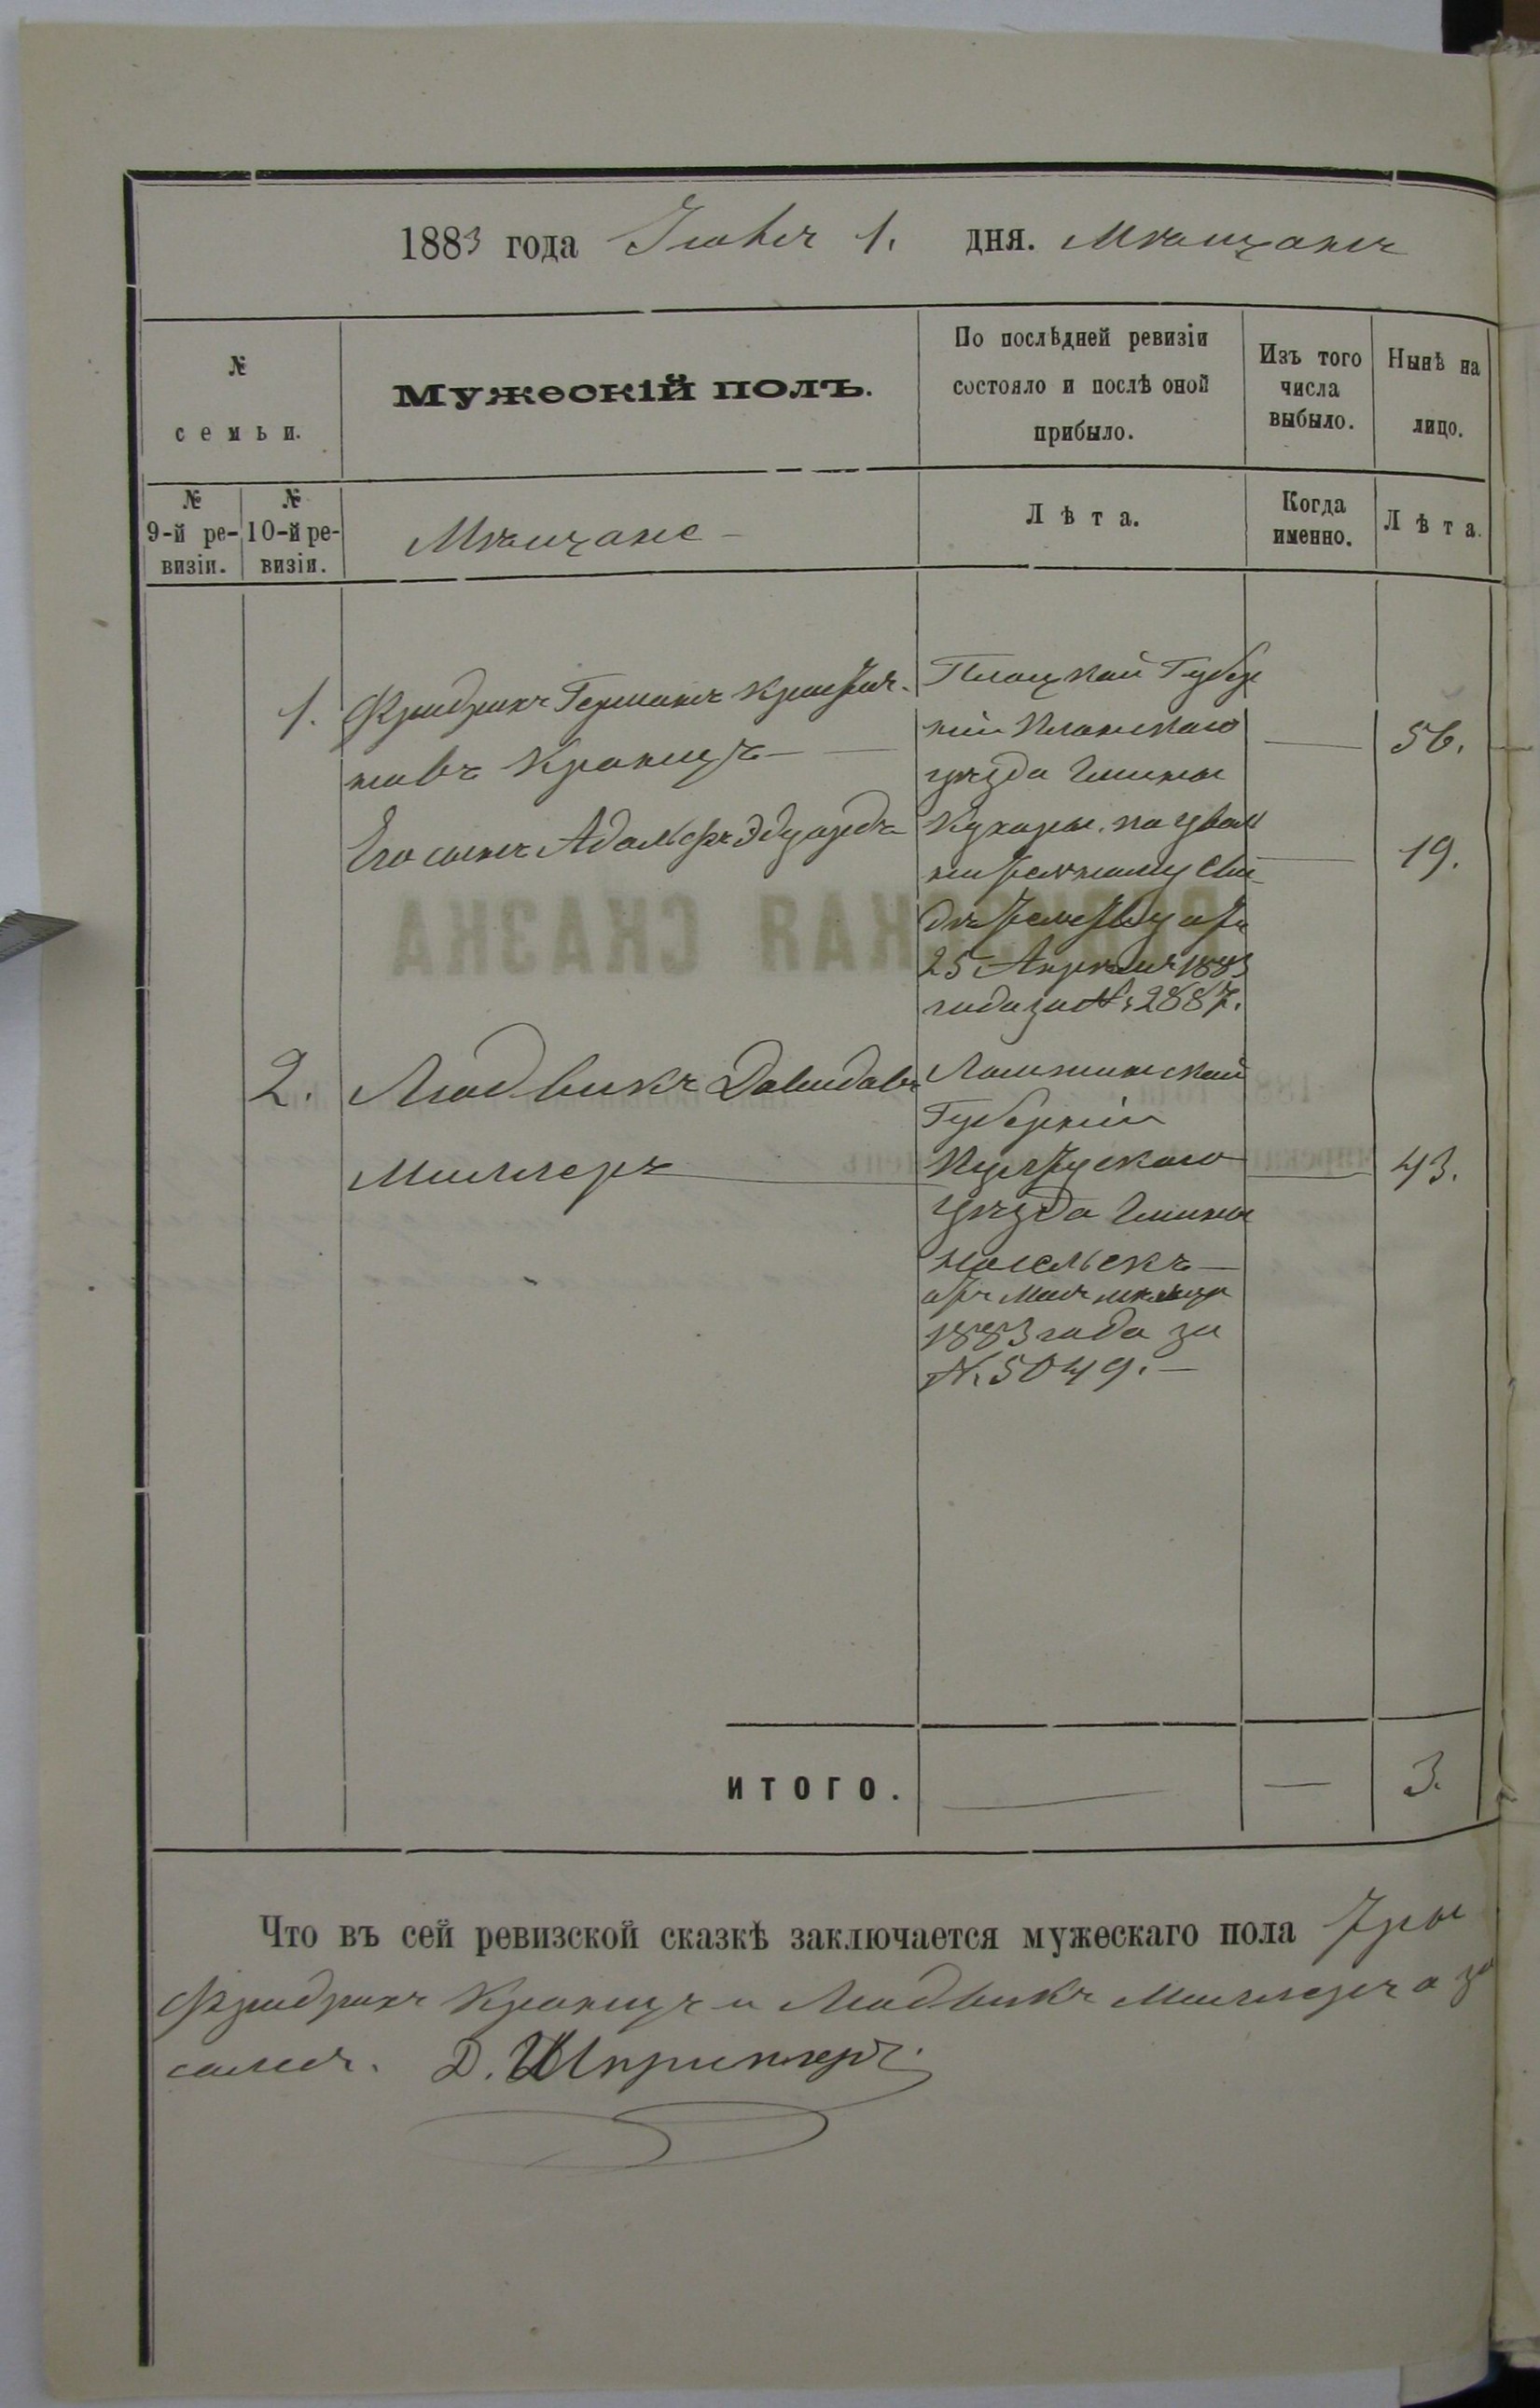 1883 года Іюня 1. дня. Мѣщанъ
№
семьи.
Мужескій полъ.
По послѣдней ревизіи
состояло и послѣ оной
прибыло.
Изъ того
числа
выбыло.
Нынѣ на
лицо.
№
9-й ре-
визіи.
№
10-й ре-
визіи.
Мѣщане
Лѣта.
Когда
именно.
Лѣта.
1. Фридрихъ Германъ
новъ Кранцъ
Плоцкой Губер
ніи
уѣзда Гмины
56.
Его сынъ Адольфъ Эдуардъ
Кухары. по уволь
нительному Сви
19.
дѣтельству отъ
25 Апрѣля 1883
года за № 2887.
РЕВИЗСКАЯ СКАЗКА
2. Людвикъ Давидовъ
Миллеръ
Ломжинской
Губерніи
Пултускаго
уѣзда Гмины
Насельскъ
отъ мѣсяца
1883 года за
№ 5049.
43.
ИТОГО. 3.
Что въ сей ревизской сказкѣ заключается мужескаго пола три
Фридрихъ Кранцъ и Людвикъ Миллеръ а за
Д. Шпринперъ